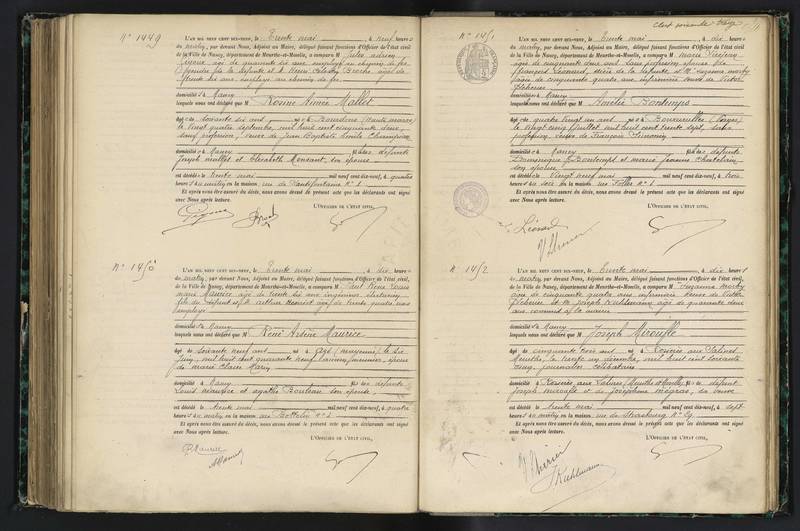 N° 1449
L'AN MIL NEUF CENT DIX-NEUF, le Trente mai à neuf heures
du matin, par devant Nous, Adjoint au Maire, délégué faisant fonctions d'Officier de l'état civil
de la Ville de Nancy, département de Meurthe-et-Moselle, a comparu M Jules
âgé de quarante six ans employé au chemin de fer
gendre de la défunte et M Broche âgé de
trente six ans employé au chemin de fer
domiciliés à Nancy
lesquels nous ont déclaré que M Rosine Aimée Mallet
âgée de soixante six ans née à Bourdons (Haute Marne)
le vingt quatre septembre mil huit cent cinquante deux
sans profession, veuve de Jean Baptiste Emile Champion
domiciliée à Nancy fille des défunts
Joseph Mallet et Elisabeth Monsant, son épouse
est décédée le trente mai mil neuf cent dix-neuf, à quatre
heures du matin en la maison, rue de n° 1
Et après nous être assuré du décès, nous avons dressé le présent acte que les déclarants ont signé
avec Nous après lecture.
L'OFFICIER DE L'ÉTAT CIVIL,
N° 1450
L'AN MIL NEUF CENT DIX-NEUF, le Trente mai à dix heures
du matin, par devant Nous, Adjoint au Maire, délégué faisant fonctions d'Officier de l'état civil,
de la Ville de Nancy, département de Meurthe-et-Moselle, a comparu M Paul René Louis
Marie Maurice âgé de trente six ans ingénieur
fils du défunt et M Arthur âgé de trente quatre ans
employé
domiciliés à Nancy
lesquels nous ont déclaré que M René Arsène Maurice
âgé de soixante neuf ans né à Agé (Mayenne) le six
juin mil huit cent quarante neuf, ancien menuisier, époux
de Marie Claire Marin
domicilié à Nancy fils des défunts
Louis Maurice et Agathe Bouleau son épouse
est décédé le trente mai mil neuf cent dix-neuf, à quatre
heures du matin en la maison rue Bottelin n° 1
Et après nous être assuré du décès, nous avons dressé le présent acte que les déclarants ont signé
avec Nous après lecture.
L'OFFICIER DE L'ÉTAT CIVIL,
P. Maurice
N° 1451
L'AN MIL NEUF CENT DIX-NEUF, le Trente mai à dix heures
du matin, par devant Nous, Adjoint au Maire, délégué faisant fonctions d'Officier de l'état civil
de la Ville de Nancy, département de Meurthe-et-Moselle, a comparu M Marie
âgée de cinquante deux ans sans profession épouse de
François Léonard, nièce de la défunte et M Suzanne Morby
âgée de cinquante quatre ans infirmière veuve de Victor
domiciliés à Nancy
lesquels nous ont déclaré que M Amélie Bontemps
âgée de quatre vingt un ans née à (Vosges)
le vingt cinq juillet mil huit cent trente sept, sans
profession, veuve de François Simonin
domiciliée à Nancy fille des défunts
Dominique Bontemps et Marie Jeanne
son épouse
est décédée le vingt neuf mai mil neuf cent dix-neuf, à trois
heures du soir en la maison rue Foller n° 1
Et après nous être assuré du décès, nous avons dressé le présent acte que les déclarants ont signé
avec Nous après lecture.
L'OFFICIER DE L'ÉTAT CIVIL,
Léonard
N° 1452
L'AN MIL NEUF CENT DIX-NEUF, le Trente mai à dix heures
du matin, par devant Nous, Adjoint au Maire, délégué faisant fonctions d'Officier de l'état civil,
de la Ville de Nancy, département de Meurthe-et-Moselle, a comparu M Suzanne Morby
âgée de cinquante quatre ans infirmière veuve de Victor
et M Joseph Kuhlmann âgé de quarante deux
ans commis à la mairie
domiciliés à Nancy
lesquels nous ont déclaré que M Joseph Miroufle
âgé de cinquante trois ans né à Rosières aux Salines
Meurthe, le trente un décembre mil huit cent soixante
cinq, journalier célibataire
domicilié à Rosières aux Salines (Meurthe et Moselle) fils de défunt
Joseph Miroufle et de Joséphine Magras, sa veuve
est décédé le trente mai mil neuf cent dix-neuf, à sept
heures du matin en la maison rue de Strasbourg n° 29
Et après nous être assuré du décès, nous avons dressé le présent acte que les déclarants ont signé
avec Nous après lecture.
L'OFFICIER DE L'ÉTAT CIVIL,
Kuhlmann